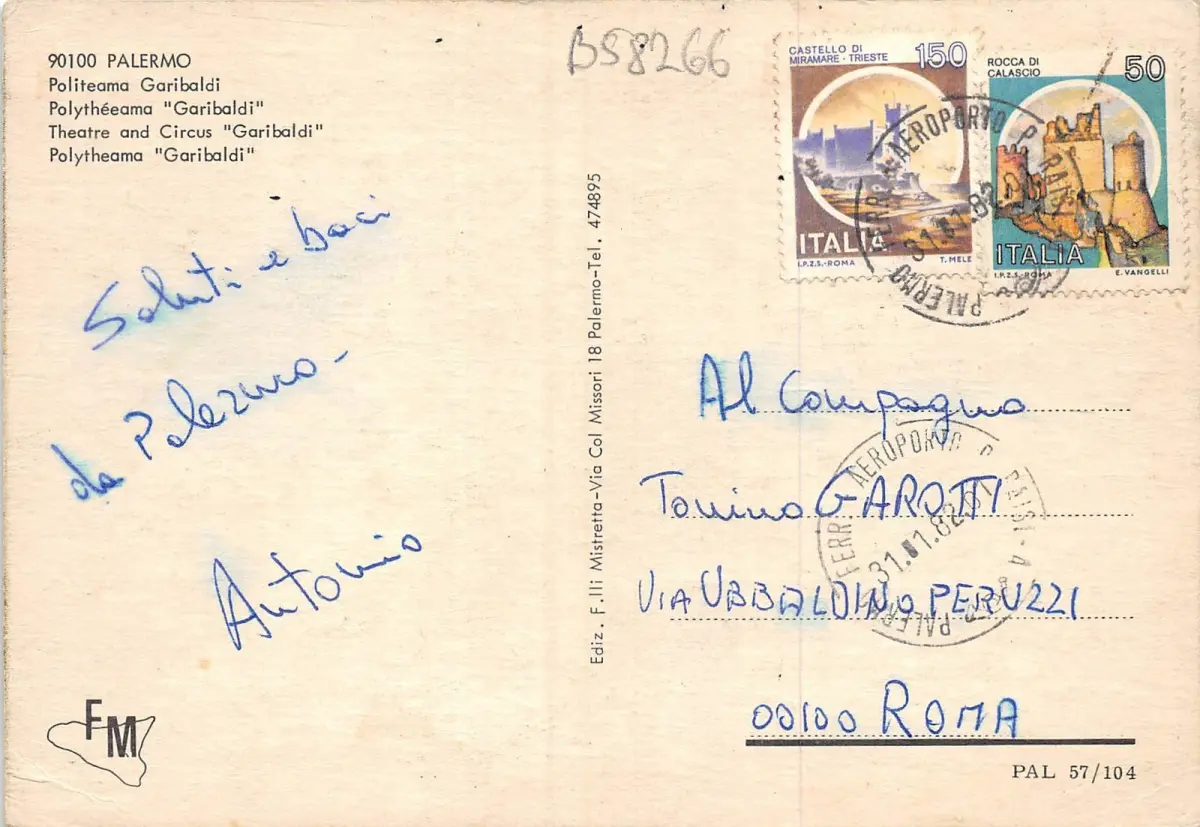 90100 PALERMO
Politeama Garibaldi
Polythéeama "Garibaldi"
Theatre and Circus "Garibaldi"
Polytheama "Garibaldi"
B58266
CASTELLO DI
MIRAMARE - TRIESTE
150
ITALIA
I.P.Z.S.-ROMA
T. MELE
ROCCA DI
CALASCIO
50
ITALIA
I.P.Z.S.-ROMA
E. VANGELLI
FERR AEROPORTO P. RAISI
PALERMO
Saluti e baci
da Palermo-
Antonio
Ediz. F.lli Mistretta-Via Col Missori 18 Palermo-Tel. 474895
Al Compagno
Tonino GAROTTI
VIA UBBALDINO PERUZZI
00100 ROMA
FERR AEROPORTO P. RAISI
PALERMO
FM
PAL 57/104